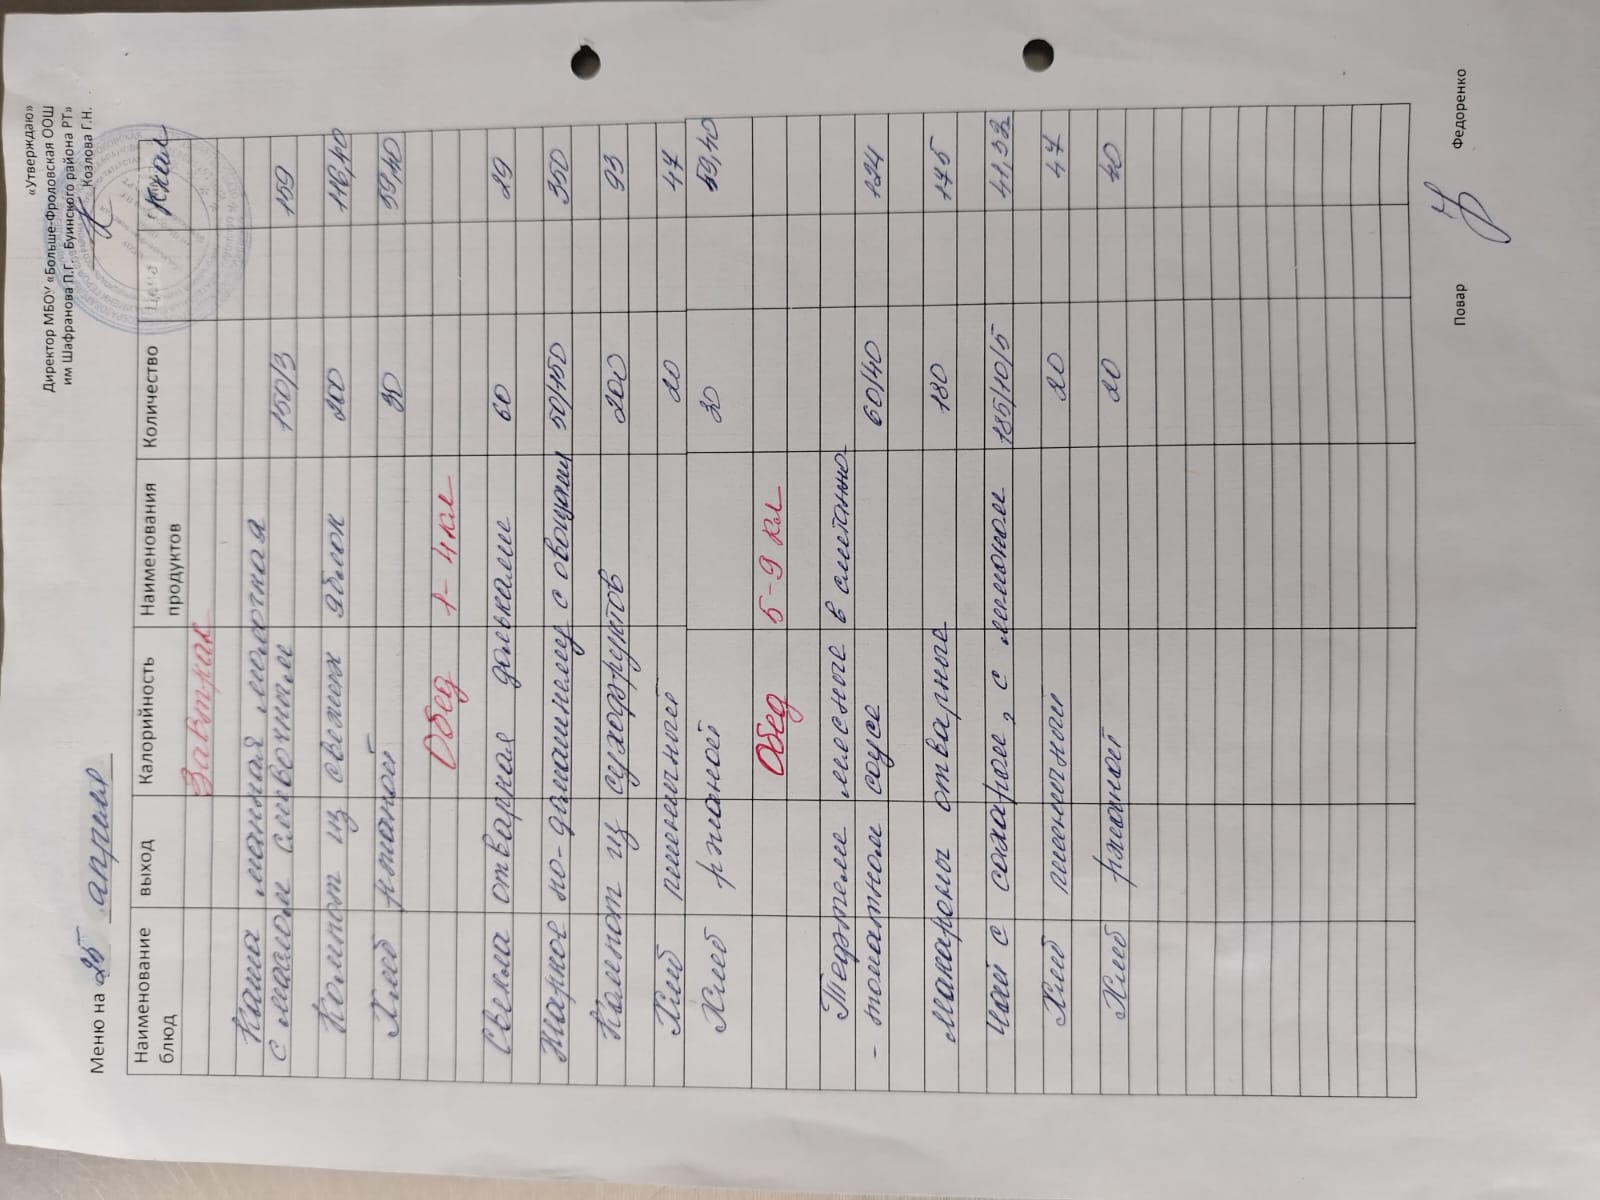 «Утверждаю»
Директор МБОУ «Больше-Фроловская ООШ
им Шафранова П.Г. Буинского района РТ»
Козлова Г.Н.
Меню на 25 апреля
Наименование блюд выход Калорийность Наименования продуктов Количество Цена Ккал
Завтрак
Каша манная молочная
с маслом сливочным 150/3 159
Компот из свежих яблок 200 116,40
Хлеб ржаной 30 59,40
Обед 1-4 кл
Свекла отварная дольками 60 29
Жаркое по-домашнему с овощами 50/150 350
Компот из сухофруктов 200 93
Хлеб пшеничной 20 47
Хлеб ржаной 30 59,40
Обед 5-9 кл
Тефтели мясные в сметанно
- томатном соусе 60/40 124
Макароны отварные 180 175
Чай с сахаром, с лимоном 185/10/5 41,32
Хлеб пшеничной 20 47
Хлеб ржаной 20 40
Повар Федоренко